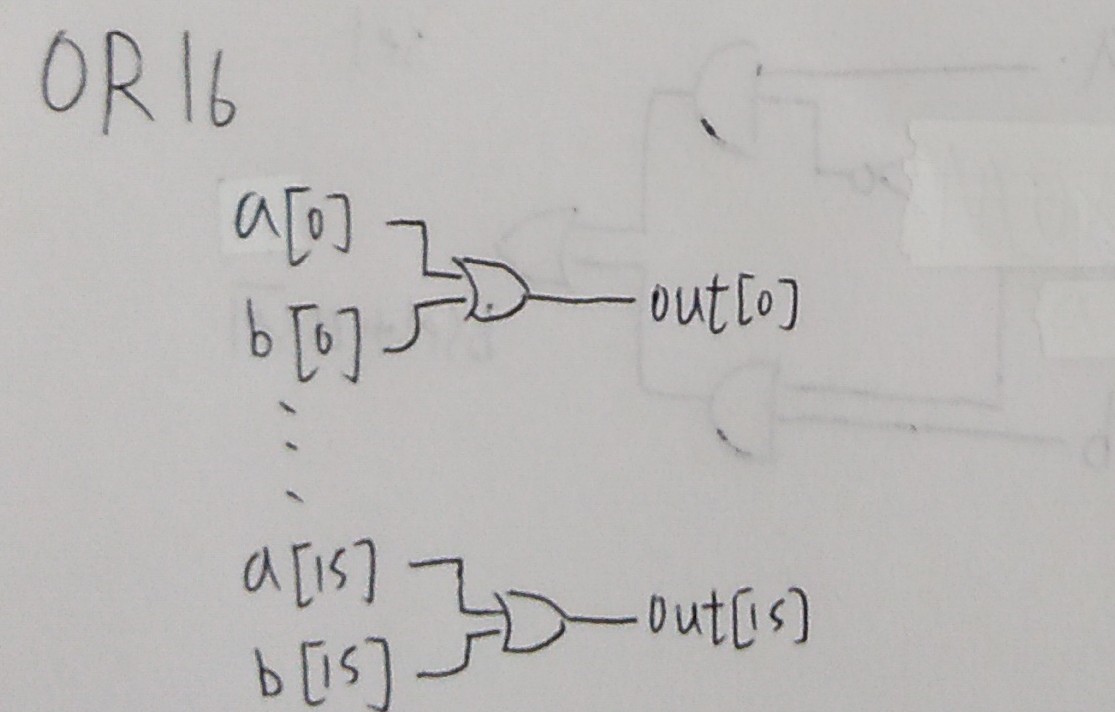 OR16
a[0]
b[0]
out[0]
a[15]
b[15]
out[15]